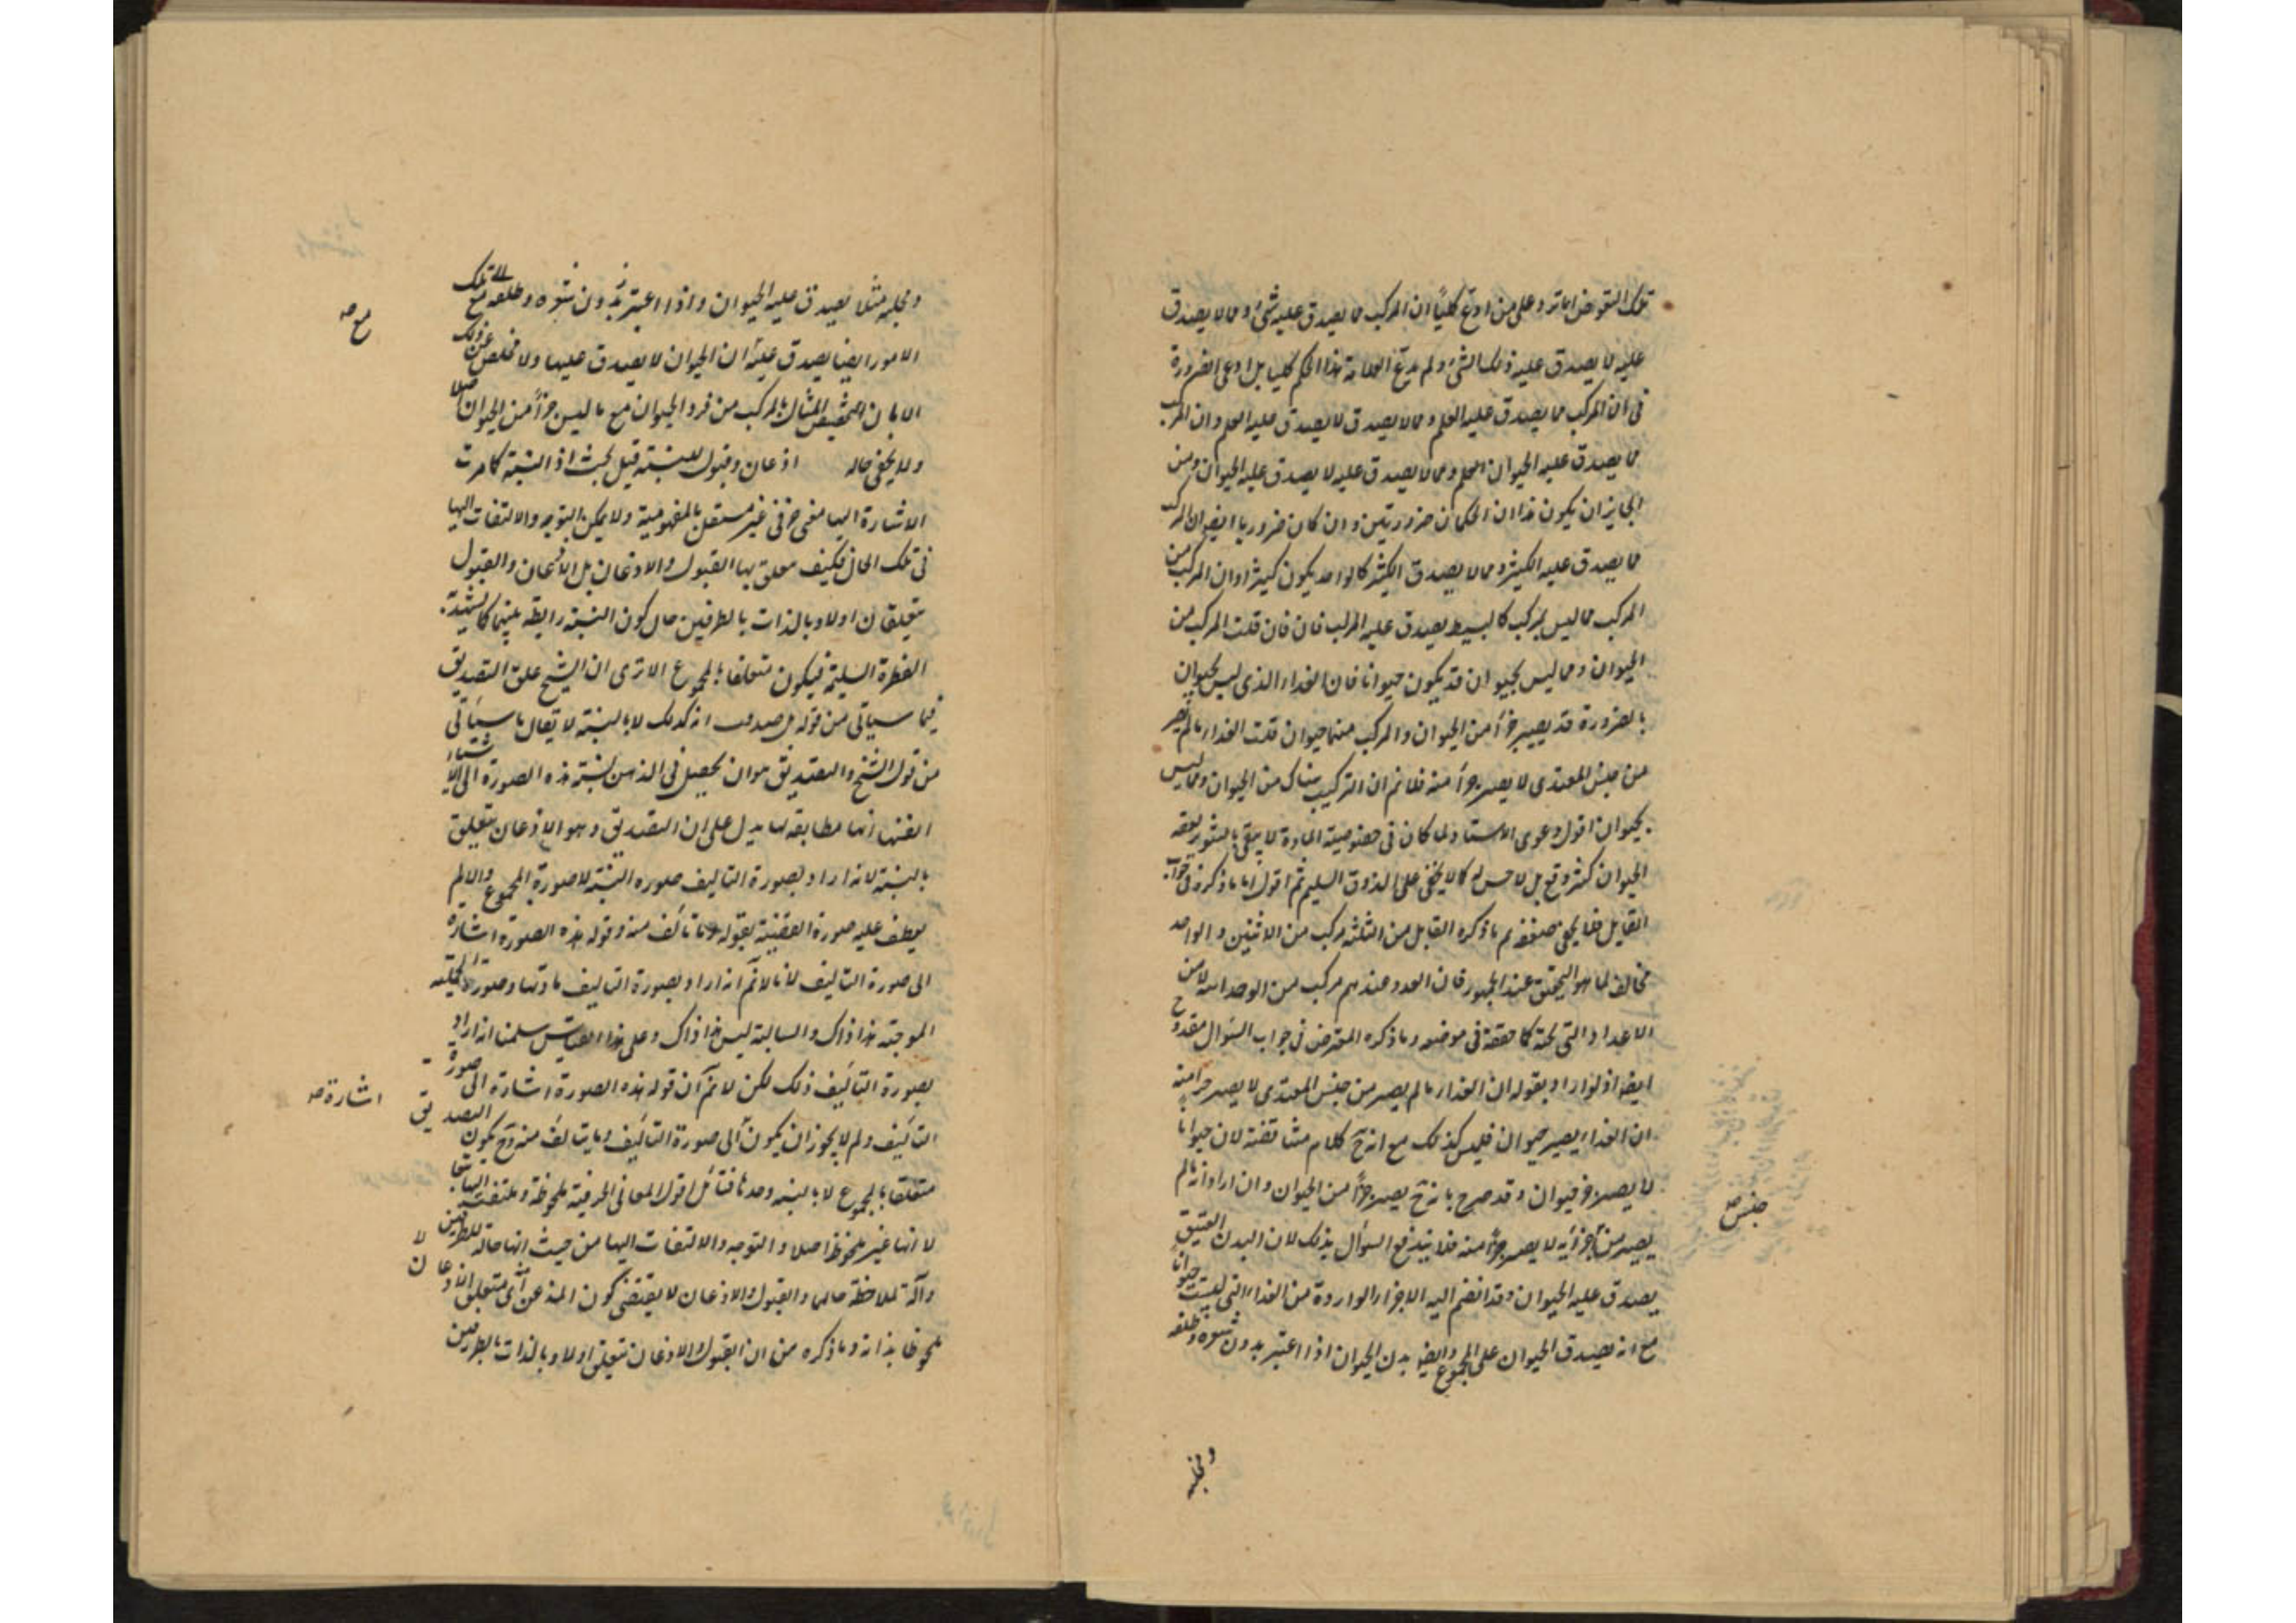 تلك النقوض اماتر وعلى من ادعى كليا ان المركب مما يصدق عليه شئ ومما لا يصدق
عليه لا يصدق عليه ذلك الشئ ولم يدع العلامة هذا الحكم كليا بل ادعى الضرورة
فى ان المركب مما يصدق عليه العلم ومما لا يصدق لا يصدق عليه العلم وان المركب
مما يصدق عليه الحيوان العلم ومما لا يصدق عليه لا يصدق عليه الحيوان ومن
الجايز ان يكون هذان الحكمان ضروريتين وان كان ضروريا ايضا ان المركب
مما يصدق عليه الكثير ومما لا يصدق الكثير كالواحد يكون كثيرا وان المركب من
المركب مما ليس بمركب كالبسيط يصدق عليه المركب فان قلت المركب من
الحيوان ومما ليس بحيوان قد يكون حيوانا فان الغذاء الذى ليس بحيوان
بالضرورة قد يصير جزأ من الحيوان والمركب منهما حيوان قلت الغذاء ما لم يصر
من جنس المغتذى لا يصير جزأ منه فلا نم ان التركيب هناك من الحيوان ومما ليس
بحيوان اقول دعوى الاستاد لما كان فى خصوصية المادة لا يبقى بالنقوض بعضه
الحيوان كثر وقع بل لا حسن له كما لا يخفى على الذوق السليم ثم اقول اما ما ذكره فى جواب
القايل فلا يخفى ضعفه ما ذكره القايل من الثلثة مركب من الاثنين والواحد
مخالف لما هو التحقيق عند الجمهور فان العدد عندهم مركب من الوحدات لا من
الاعداد التى تحته كما حققه فى موضعه وما ذكره المعترض فى جواب السؤال مقدوح
ايضا اذ لو اراد بقوله ان الغذاء ما لم يصر من جنس المغتذى لا يصير جزأ منه
ان الغذاء يصير حيوان فليس كذلك مع انه ح كلام متناقض لان حيوانا
لا يصير جزء حيوان وقد صرح بانه ح يصير جزأ من الحيوان وان اراد انه ما لم
يصير من اجزائه لا يصير جزأ منه فلا يندفع السؤال بذلك لان البدن العتيق
يصدق عليه الحيوان وقد انضم اليه الاجزاء الواردة من الغذاء التى ليست حيوانا
مع انه يصدق الحيوان على المجموع وايضا بدن الحيوان اذا اعتبر بدون شعره وظلفه
جنس صح
ومخلبه
ومخلبه مثلا يصدق عليه الحيوان واذا اعتبر بدون شعره وظلفه مع تلك
الامور ايضا يصدق عليه ان الحيوان لا يصدق عليها ولا مخلص عن ذلك
الا بان تخصيص المثال بالمركب من فرد الحيوان مع ما ليس جزأ من الحيوان اصلا
ولا يخفى حاله اذعان وقبول للنسبة قيل بحث اذ النسبة كما مرت
الاشارة اليها معنى حرفى غير مستقل بالمفهومية ولا يمكن التوجه والالتفات اليها
فى تلك الحال فكيف يتعلق بها القبول والاذعان بل الاذعان والقبول
يتعلقان اولا وبالذات بالطرفين حال كون النسبة رابطة بينهما كما يشهد به
الفطرة السليمة فيكون متعلقا بالمجموع الا ترى ان الشيخ علق التصديق
فيما سياتى من قوله بل صدقت انه كذلك لا بالنسبة لا يقال ما سياتى
من قول الشيخ والتصديق هو ان يحصل فى الذهن نسبة هذه الصورة الى الاشياء
انفسها انها مطابقة لها يدل على ان التصديق وهو الاذعان يتعلق
بالنسبة لانه اراد بصورة التاليف صورة النسبة لا صورة المجموع والا لم
يعطف عليه صورة القضية بقوله وما تألف منه وقوله هذه الصورة اشارة
الى صورة التاليف لانا لا نم انه اراد بصورة التاليف مادتها وصورة الحملية
الموجبة هذا ذاك والسالبة ليس هذا ذاك وعلى هذا القياس سلمنا انه اراد
بصورة التأليف ذلك لكن لا نم ان قوله هذه الصورة اشارة الى صورة
التأليف ولم لا يجوز ان يكون الى صورة التأليف وما يتالف منه وح يكون التصديق
متعلقا بالمجموع لا بالنسبة وحدها فتأمل اقول المعانى الحرفية ملحوظة وملتفت اليها تبعا
لا انها غير ملحوظ اصلا والتوجه والالتفات اليها من حيث انها حالة للطرفين
وآلة لملاحظة حالهما والقبول والاذعان لا يقتضى كون المذعن اى متعلق الاذعان
ملحوظا بذاته وما ذكره من ان القبول والاذعان يتعلق اولا وبالذات بالطرفين
مع صح
اشارة صح